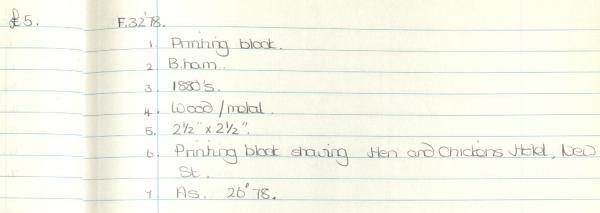 £5. F.32'78.
1 Printing block.
2 B.ham.
3. 1880's.
4. Wood/metal.
5. 2½" x 2½".
6. Printing block showing Hen and Chickens Hotel, New
St.
7 As. 26'78.